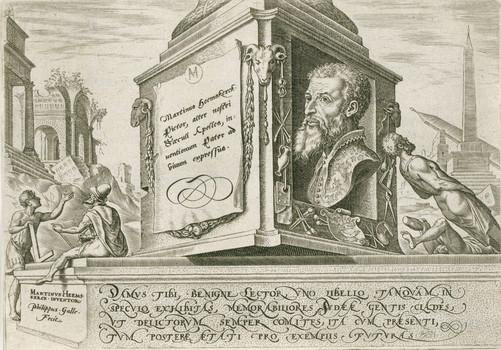 M
Martinus Heemskerck
Pictor, alter nostri
Sæculi Apelles, in
uentionum Pater ad
viuum expressus.
MARTINVS HEEMS
KERCK INVENTOR
Philippus Galle
Fecit
DAMVS TIBI, BENIGNE LECTOR, VNO LIBELLO TANQVAM IN
SPECVLO EXHIBITAS, MEMORABILIORES IVDEÆ GENTIS CLADES,
VT DELICTORVM SEMPER COMITES, ITA CVM PRÆSENTI,
TVM POSTERÆ ÆTATI PRO EXEMPLIS FVTVRAS